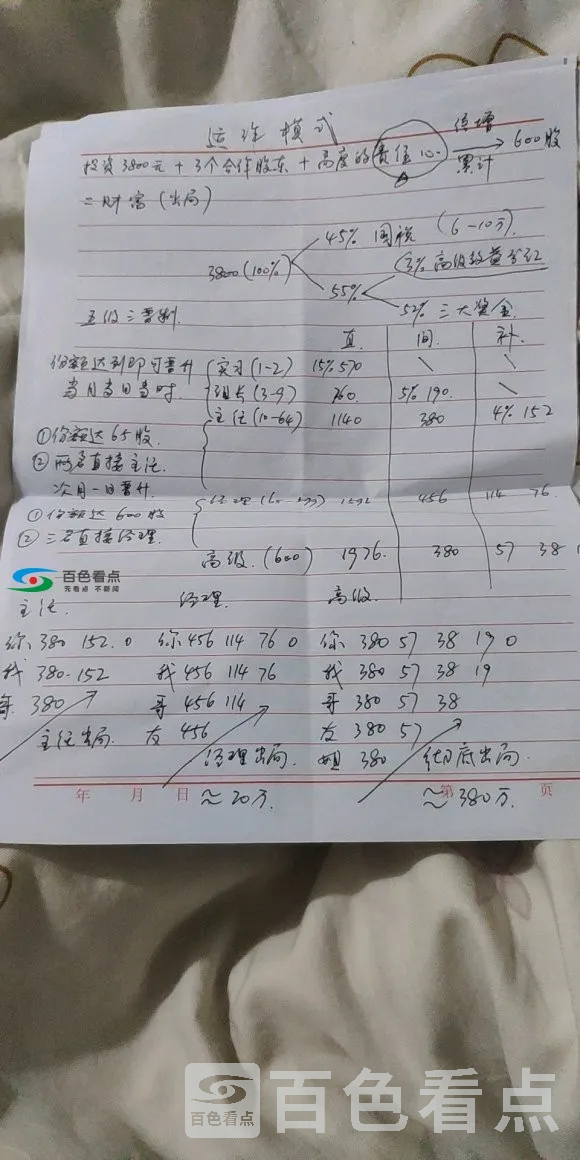 运作模式
投资3800元+3个合作股东+高度的责任心 倍增 累计 → 600股
=财富(出局)
3800(100%)
45% 国税(6-10万)
55%
3% 高级效益分红
52% 三大奖金
五级三晋制
直 间 补
份额达到即可晋升 实习(1-2) 15% 570 \ \
当月当日当时 组长(3-9) 760 5% 190 \
主任(10-64) 1140 380 4% 152
①份额达65股
②两名直接主任
次月一日晋升
经理 1592 456 114 76
①份额达600股
②三名直接经理
高级(600) 1976 380 57 38
百色看点
无看点 不新闻
主任 经理 高级
你 380 152 0 你 456 114 76 0 你 380 57 38 19 0
我 380-152 我 456 114 76 我 380 57 38 19
哥 380 哥 456 114 哥 380 57 38
主任出局 友 456 友 380 57
经理出局 姐 380 彻底出局
年 月 日 ≈20万 ≈380万 第 页
百色看点
百色看点